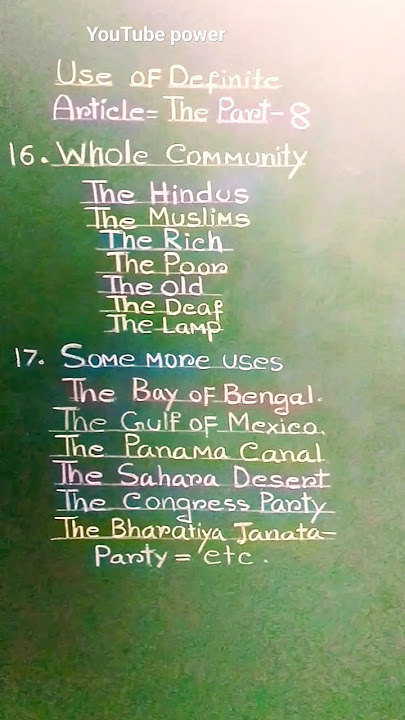 YouTube power
Use of Definite
Article= The Part-8
16. Whole Community
The Hindus
The Muslims
The Rich
The Poor
The old
The Deaf
The Lamp
17. Some more uses
The Bay of Bengal.
The Gulf of Mexico.
The Panama Canal
The Sahara Desert
The Congress Party
The Bharatiya Janata-
Party = etc.